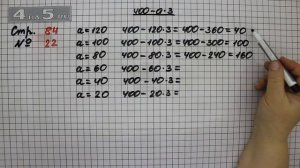 4 5
400-a·3
Стр. 84
№ 22
a=120 400-120·3=400-360=40
a=100 400-100·3=400-300=100
a=80 400-80·3=400-240=160
a=60 400-60·3=
a=40 400-40·3=
a=20 400-20·3=